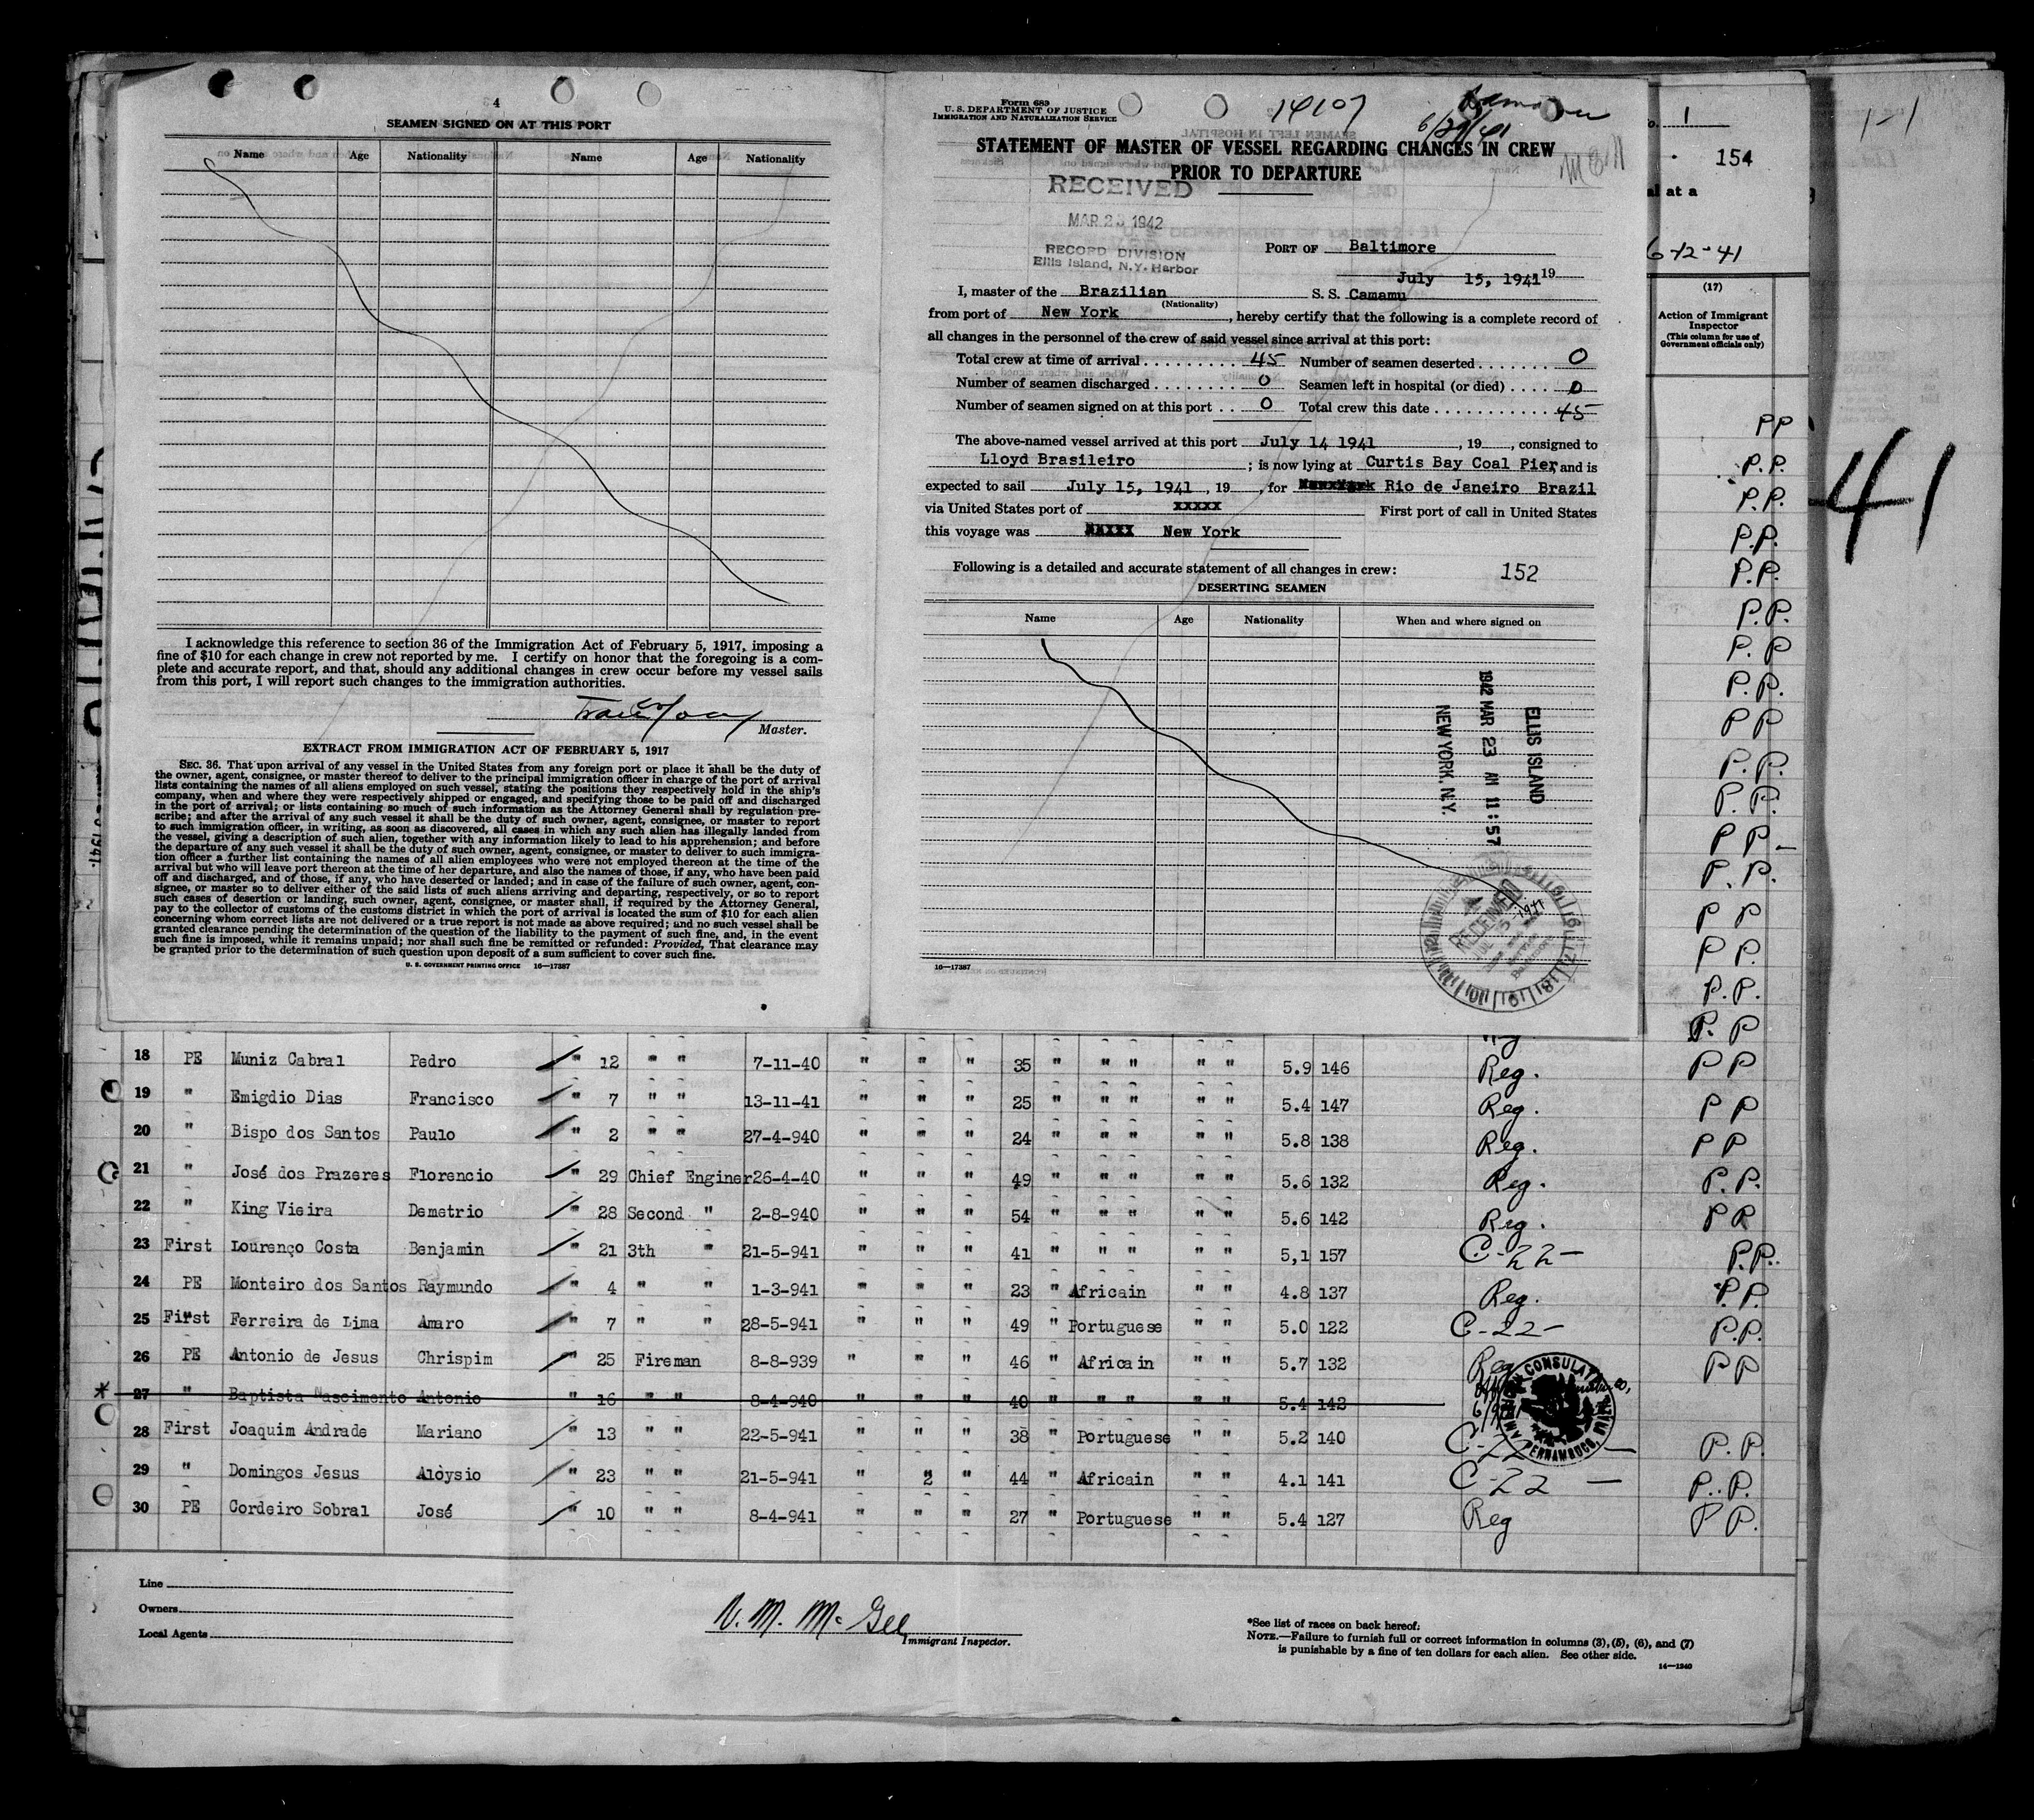 4
SEAMEN SIGNED ON AT THIS PORT
Name Age Nationality Name Age Nationality
I acknowledge this reference to section 36 of the Immigration Act of February 5, 1917, imposing a
fine of $10 for each change in crew not reported by me. I certify on honor that the foregoing is a com-
plete and accurate report, and that, should any additional changes in crew occur before my vessel sails
from this port, I will report such changes to the immigration authorities.
Master.
EXTRACT FROM IMMIGRATION ACT OF FEBRUARY 5, 1917
SEC. 36. That upon arrival of any vessel in the United States from any foreign port or place it shall be the duty of
the owner, agent, consignee, or master thereof to deliver to the principal immigration officer in charge of the port of arrival
lists containing the names of all aliens employed on such vessel, stating the positions they respectively hold in the ship's
company, when and where they were respectively shipped or engaged, and specifying those to be paid off and discharged
in the port of arrival; or lists containing so much of such information as the Attorney General shall by regulation pre-
scribe; and after the arrival of any such vessel it shall be the duty of such owner, agent, consignee, or master to report
to such immigration officer, in writing, as soon as discovered, all cases in which any such alien has illegally landed from
the vessel, giving a description of such alien, together with any information likely to lead to his apprehension; and before
the departure of any such vessel it shall be the duty of such owner, agent, consignee, or master to deliver to such immigra-
tion officer a further list containing the names of all alien employees who were not employed thereon at the time of the
arrival but who will leave port thereon at the time of her departure, and also the names of those, if any, who have been paid
off and discharged, and of those, if any, who have deserted or landed; and in case of the failure of such owner, agent, con-
signee, or master so to deliver either of the said lists of such aliens arriving and departing, respectively, or so to report
such cases of desertion or landing, such owner, agent, consignee, or master shall, if required by the Attorney General,
pay to the collector of customs of the customs district in which the port of arrival is located the sum of $10 for each alien
concerning whom correct lists are not delivered or a true report is not made as above required; and no such vessel shall be
granted clearance pending the determination of the question of the liability to the payment of such fine, and, in the event
such fine is imposed, while it remains unpaid; nor shall such fine be remitted or refunded: Provided, That clearance may
be granted prior to the determination of such question upon deposit of a sum sufficient to cover such fine.
U. S. GOVERNMENT PRINTING OFFICE 16—17387
Form 689
U. S. DEPARTMENT OF JUSTICE
IMMIGRATION AND NATURALIZATION SERVICE
14107
6/29/41
STATEMENT OF MASTER OF VESSEL REGARDING CHANGES IN CREW
PRIOR TO DEPARTURE
RECEIVED
MAR 23 1942
RECORD DIVISION
Ellis Island, N.Y. Harbor
PORT OF Baltimore
July 15, 1941 19
I, master of the Brazilian S. S. Camamu
(Nationality)
from port of New York, hereby certify that the following is a complete record of
all changes in the personnel of the crew of said vessel since arrival at this port:
Total crew at time of arrival 45 Number of seamen deserted 0
Number of seamen discharged 0 Seamen left in hospital (or died) 0
Number of seamen signed on at this port 0 Total crew this date 45
The above-named vessel arrived at this port July 14 1941, 19, consigned to
Lloyd Brasileiro; is now lying at Curtis Bay Coal Pier, and is
expected to sail July 15, 1941, 19, for Rio de Janeiro Brazil
via United States port of xxxxx First port of call in United States
this voyage was New York
Following is a detailed and accurate statement of all changes in crew: 152
DESERTING SEAMEN
Name Age Nationality When and where signed on
ELLIS ISLAND
1942 MAR 23 AM 11:57
NEW YORK, N.Y.
RECEIVED
1941
16—17387
1
154
al at a
6-12-41
(17)
Action of Immigrant
Inspector
(This column for use of
Government officials only)
PP
P.P.
P.P.
P.P.
P.P.
P.P.
P.P
P.P.
PP
P.P.
P.P.
PP –
P.P.
P P
P P.
P.P.
P. P
1-1
41
18 PE Muniz Cabral Pedro " 12 " " 7-11-40 " " " 35 " " " " " 5.9 146 Reg. PP
19 " Emigdio Dias Francisco " 7 " " 13-11-41 " " " 25 " " " " " 5.4 147 Reg. PP
20 " Bispo dos Santos Paulo " 2 " " 27-4-940 " " " 24 " " " " " 5.8 138 Reg. PP
21 " José dos Prazeres Florencio " 29 Chief Enginer 26-4-40 " " " 49 " " " " " 5.6 132 Reg. P.P.
22 " King Vieira Demetrio " 28 Second " 2-8-940 " " " 54 " " " " " 5.6 142 Reg. PP
23 First Lourenço Costa Benjamin " 21 3th " 21-5-941 " " " 41 " " " " " 5,1 157 C-22- P.P.
24 PE Monteiro dos Santos Raymundo " 4 " " 1-3-941 " " " 23 " Africain " " 4.8 137 Reg. P.P.
25 First Ferreira de Lima Amaro " 7 " " 28-5-941 " " " 49 " Portuguese " " 5.0 122 C-22- P.P.
26 PE Antonio de Jesus Chrispim " 25 Fireman 8-8-939 " " " 46 " Africain " " 5.7 132 Reg PP
* 27 " Baptista Nascimento Antonio " 16 " " 8-4-940 " " " 40 " " " " " 5.4 142
28 First Joaquim Andrade Mariano " 13 " " 22-5-941 " " " 38 " Portuguese " " 5.2 140 C-22 – P.P.
29 " Domingos Jesus Aloysio " 23 " " 21-5-941 " 2 " 44 " Africain " " 4.1 141 C-22 – P.P.
30 PE Cordeiro Sobral José " 10 " " 8-4-941 " " " 27 " Portuguese " " 5.4 127 Reg PP.
AMERICAN CONSULATE
PERNAMBUCO, BRAZIL
Line
Owners
Local Agents
V. M. McGee
Immigrant Inspector.
*See list of races on back hereof.
NOTE.—Failure to furnish full or correct information in columns (3), (5), (6), and (7)
is punishable by a fine of ten dollars for each alien. See other side.
14—1240